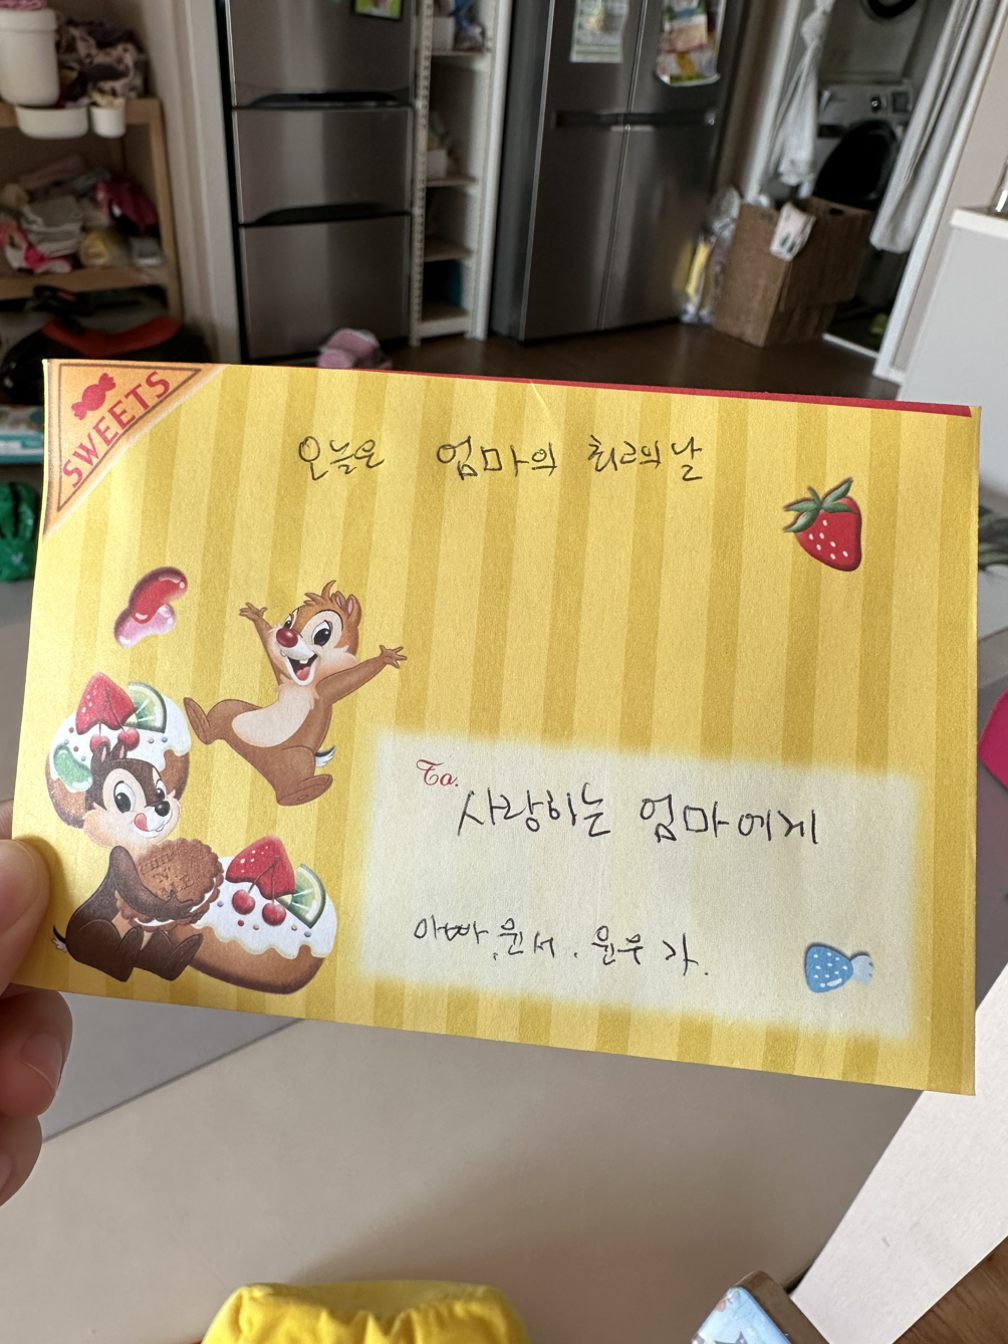 SWEETS
오늘은 엄마의 최고의 날
To.
사랑하는 엄마에게
아빠, 윤서, 윤우가.